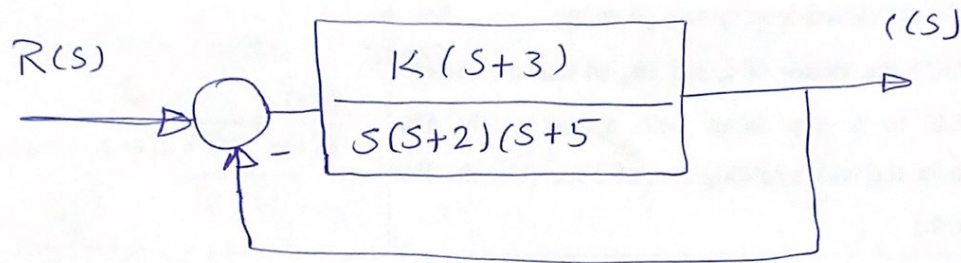 R(S)
K(S+3)
S(S+2)(S+5
-
C(S)